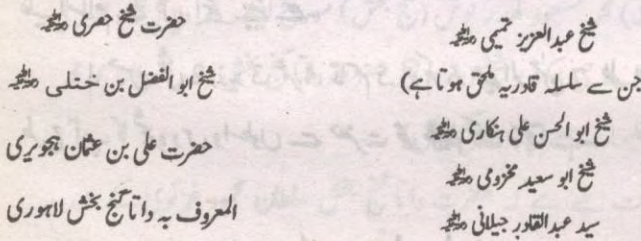 شیخ عبدالعزیز تمیمی رحمۃ اللہ علیہ
جن سے سلسلہ قادریہ ملحق ہوتا ہے)
شیخ ابوالحسن علی ہنکاری رحمۃ اللہ علیہ
شیخ ابو سعید مخزومی رحمۃ اللہ علیہ
سید عبدالقادر جیلانی رحمۃ اللہ علیہ
حضرت شیخ حصری رحمۃ اللہ علیہ
شیخ ابوالفضل بن ختلی رحمۃ اللہ علیہ
حضرت علی بن عثمان ہجویری
المعروف بہ داتا گنج بخش لاہوری